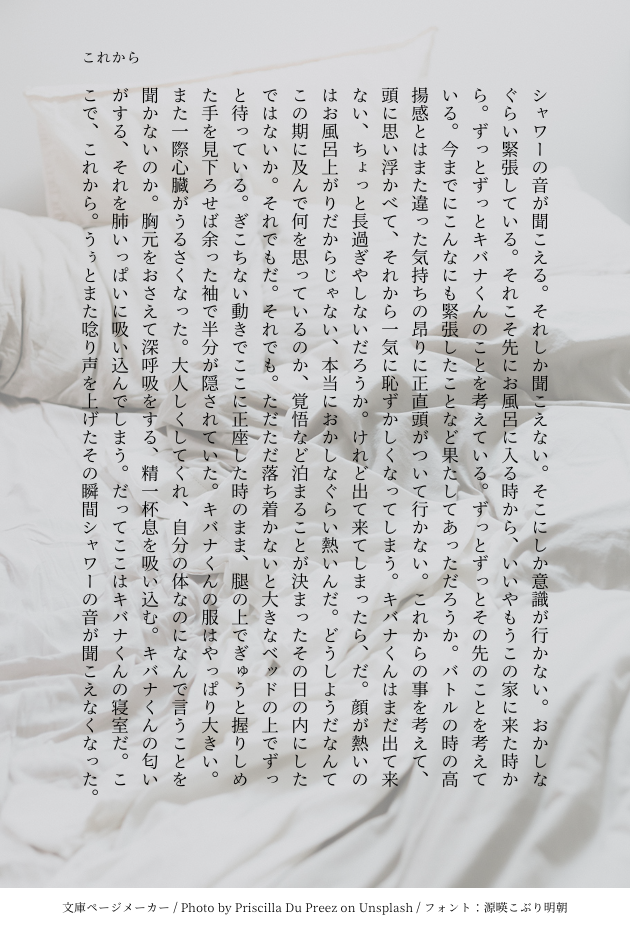 これから
シャワーの音が聞こえる。それしか聞こえない。そこにしか意識が行かない。おかしな
ぐらい緊張している。それこそ先にお風呂に入る時から、いいやもうこの家に来た時か
ら。ずっとずっとキバナくんのことを考えている。ずっとずっとその先のことを考えて
いる。今までにこんなにも緊張したことなど果たしてあっただろうか。バトルの時の高
揚感とはまた違った気持ちの昂りに正直頭がついて行かない。これからの事を考えて、
頭に思い浮かべて、それから一気に恥ずかしくなってしまう。キバナくんはまだ出て来
ない、ちょっと長過ぎやしないだろうか。けれど出て来てしまったら、だ。顔が熱いの
はお風呂上がりだからじゃない、本当におかしなぐらい熱いんだ。どうしようだなんて
この期に及んで何を思っているのか、覚悟など泊まることが決まったその日の内にした
ではないか。それでもだ。それでも。ただただ落ち着かないと大きなベッドの上でずっ
と待っている。ぎこちない動きでここに正座した時のまま、腿の上でぎゅうと握りしめ
た手を見下ろせば余った袖で半分が隠されていた。キバナくんの服はやっぱり大きい。
また一際心臓がうるさくなった。大人しくしてくれ、自分の体なのになんで言うことを
聞かないのか。胸元をおさえて深呼吸をする、精一杯息を吸い込む。キバナくんの匂い
がする、それを肺いっぱいに吸い込んでしまう。だってここはキバナくんの寝室だ。こ
こで、これから。うぅとまた唸り声を上げたその瞬間シャワーの音が聞こえなくなった。
文庫ページメーカー / Photo by Priscilla Du Preez on Unsplash / フォント：源暎こぶり明朝